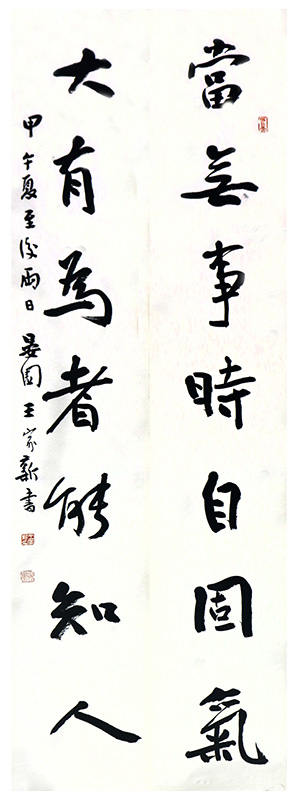 當無事時自固氣
大有為者能知人
甲午夏至後兩日 晏園 王家新書